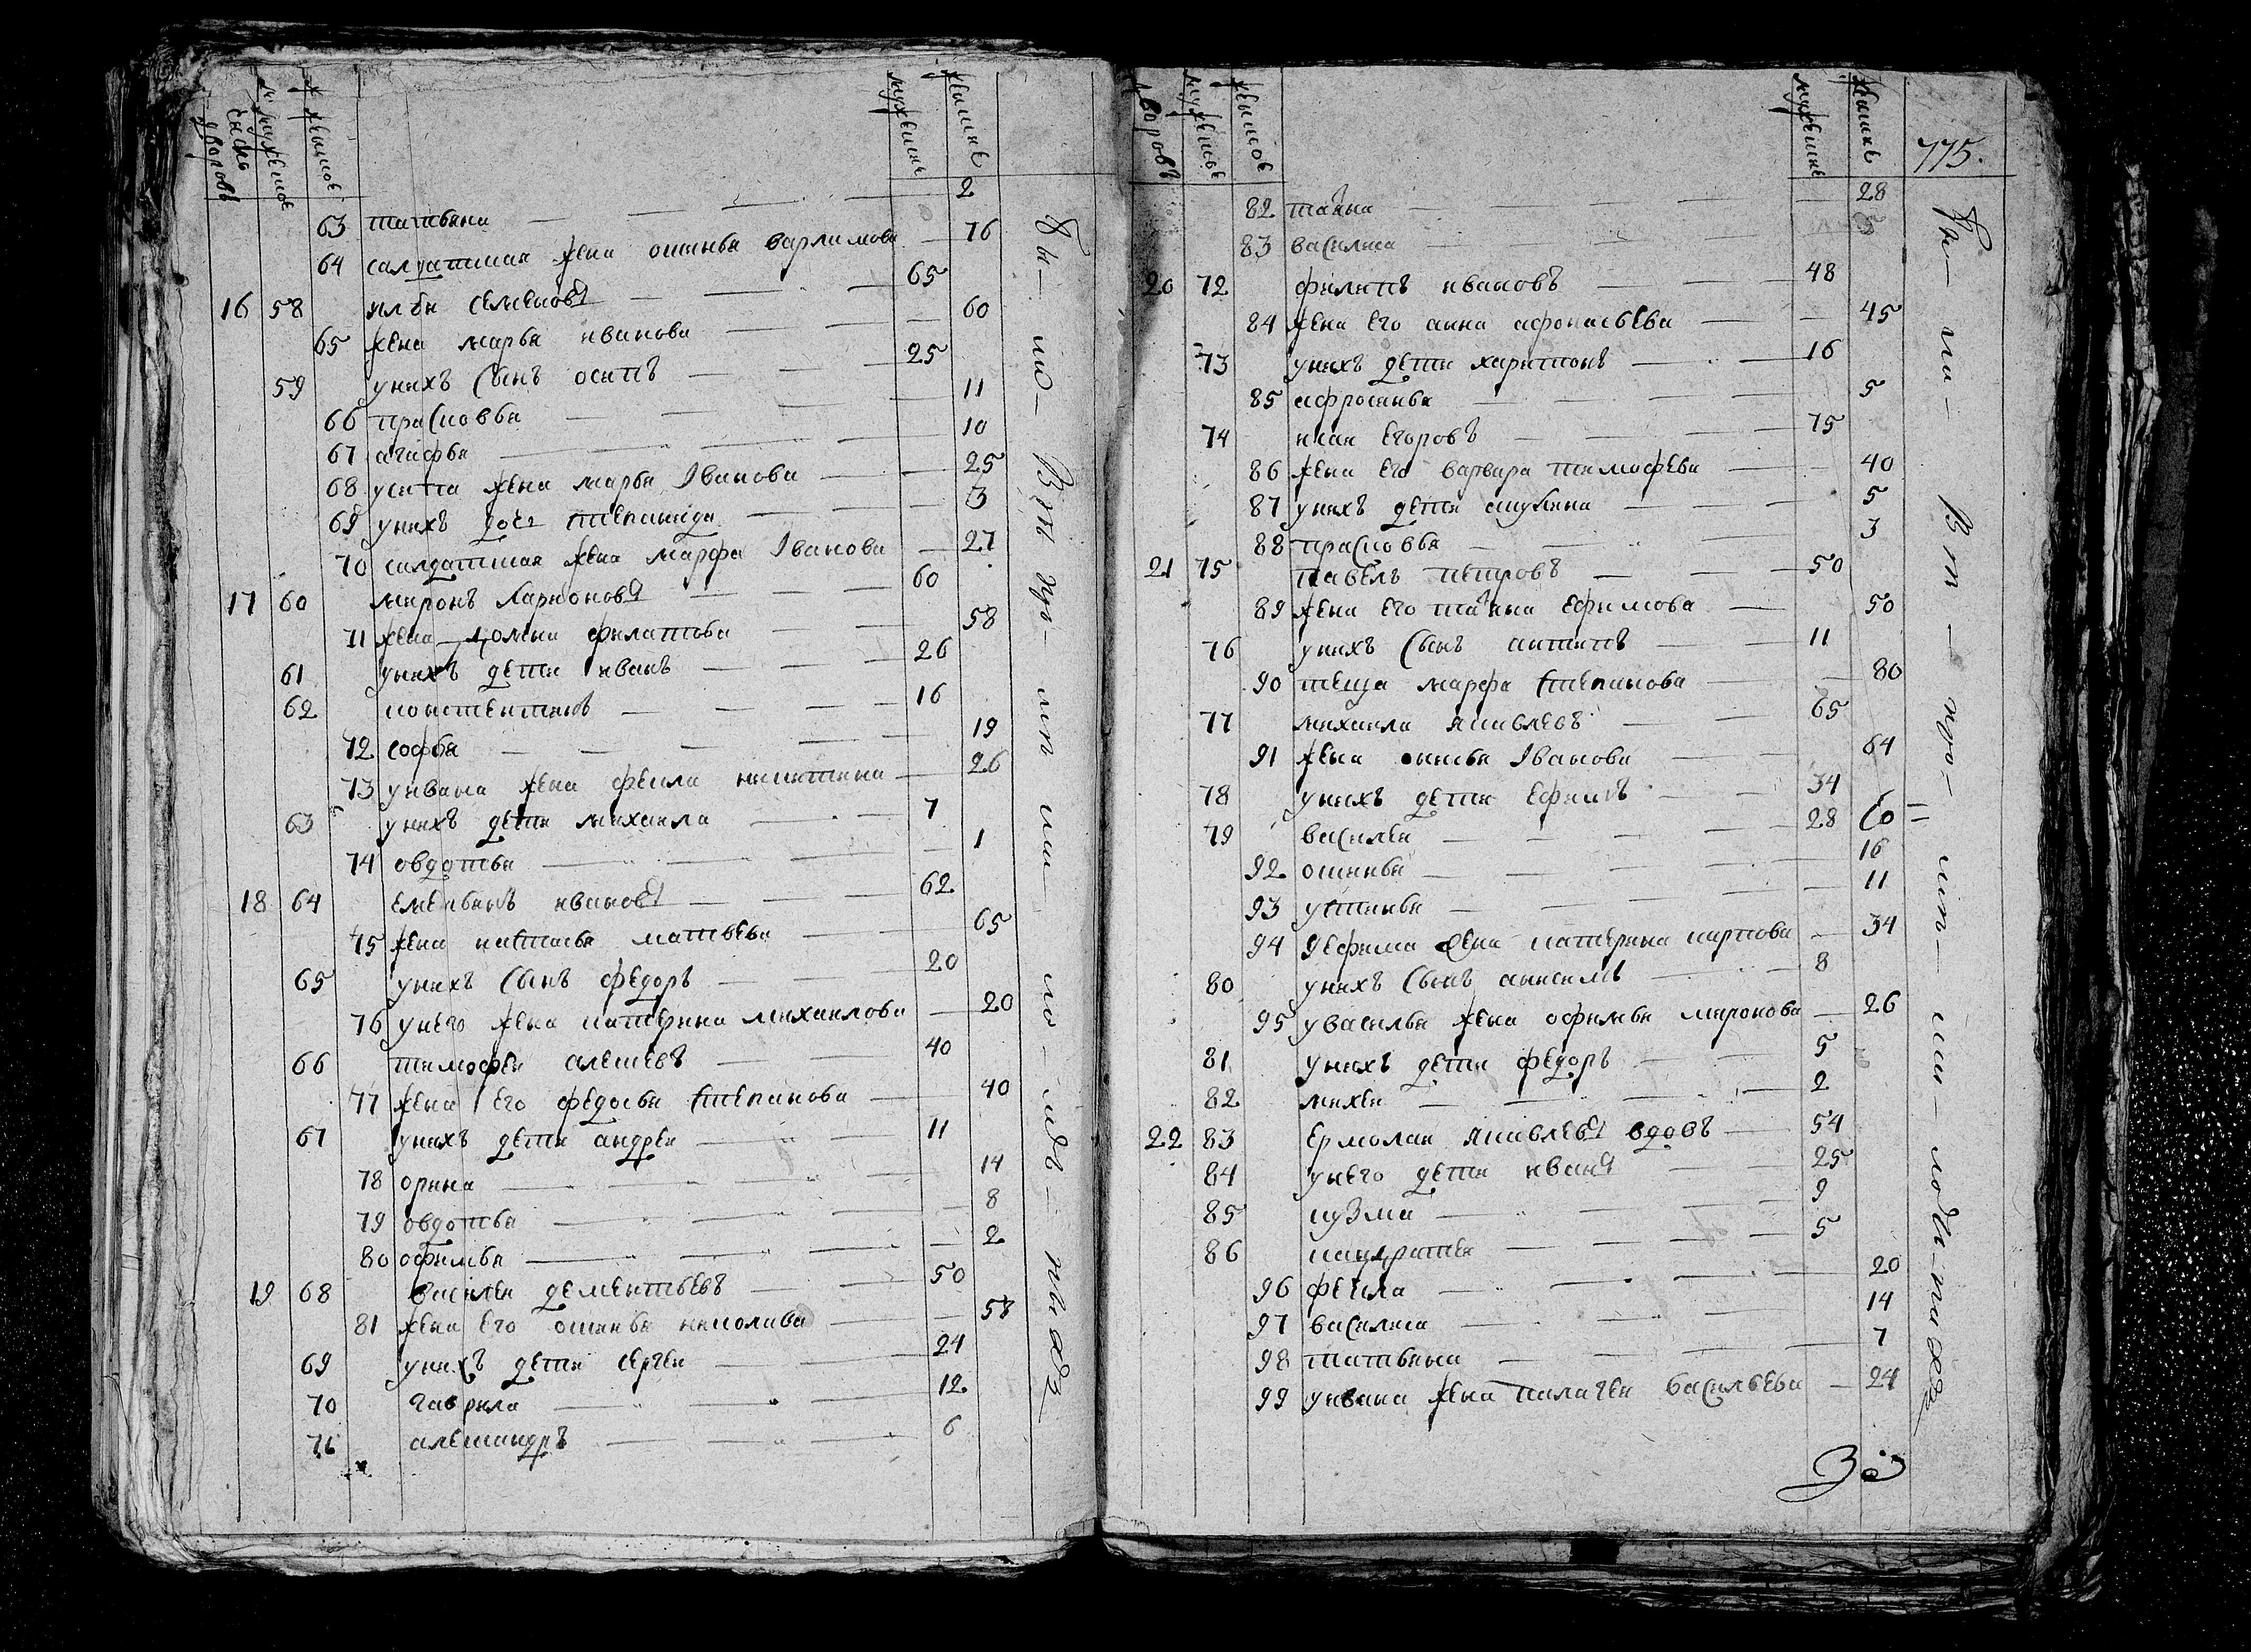 число дворовъ мужеское женское мужеские женские
63 татьяна 2
64 салдатская жена оксинья варламова 76
16 58 илья семеновъ 65
65 жена марья иванова 60
59 унихъ сынъ осипъ 25
66 прасковья 11
67 агафья 10
68 уосипа жена марья Іванова 25
69 унихъ дочь степанида 3
70 салдатская жена марфа Іванова 27
17 60 миронъ ларионовъ 60
71 жена домна филатова 58
61 унихъ дети иванъ 26
62 констентинъ 16
72 софья 19
73 уивана жена фекла никитина 26
63 унихъ дети михаила 7
74 овдотья 1
18 64 емельянъ ивановъ 62
75 жена настасья матвева 65
65 унихъ сынъ федоръ 20
76 унего жена катерина михаилова 20
66 тимофеи алексевъ 40
77 жена его федосья степанова 40
67 унихъ дети андреи 11
78 орина 14
79 овдотья 8
80 офимья 2
19 68 василеи дементьевъ 50
81 жена его оксинья николава 58
69 унихъ дети сергеи 24
70 гаврила 12
71 александръ 6
дворовъ мужеское женское мужеские женские 775.
82 таtьяна 28
83 василиса 5
20 72 филипъ ивановъ 48
84 жена его анна афонасьева 45
73 унихъ дети харитонъ 16
85 афросинья 5
74 исаи егоровъ 75
86 жена его варвара тимофева 40
87 унихъ дети акулина 5
88 прасковья 3
21 75 павелъ петровъ 50
89 жена его татьяна ефимова 50
76 унихъ сынъ антипъ 11
90 теща марфа степанова 80
77 михаила яковлевъ 65
91 жена оксинья Іванова 64
78 унихъ дети ефимъ 34
79 василеи 28
92 оксинья 16
93 устинья 11
94 уефима жена катерина карпова 34
80 унихъ сынъ анисимъ 8
95 увасилья жена офимья миронова 26
81 унихъ дети федоръ 5
82 михеи 2
22 83 ермолаи яковлевъ вдовъ 54
84 унего дети иванъ 25
85 кузма 9
86 кандратеи 5
96 фекла 20
97 василиса 14
98 татьяна 7
99 уивана жена палагея васильева 24